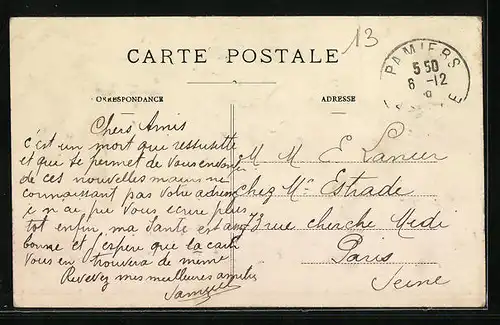 CARTE POSTALE
13
PAMIERS
5 50
6 - 12
CORRESPONDANCE
ADRESSE
Chers Amis
c'est un mort que ressussite
et qui se permet de vous
de ces nouvelles mais ne
connaissant pas votre
je n'ai pu vous ecrire plus
tot enfin, ma Santé est
bonne et j'espere que la
vous en trouvera de même
Recevez mes meilleures amitiés
Samuel
M. M. E
chez Mr Estrade
73 rue cherche Midi
Paris
Seine